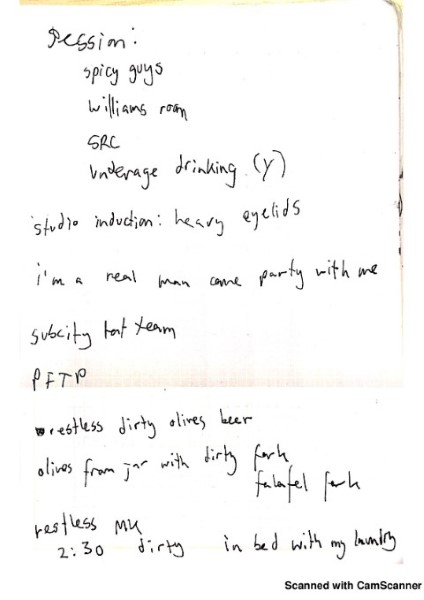 Session:
spicy guys
Williams room
SRC
Underage drinking (Y)
studio induction: heavy eyelids
i'm a real man come party with me
subcity team
PFTP
restless dirty olives beer
olives from jar with dirty fork
falafel fork
restless MK
2:30 dirty in bed with my laundry
Scanned with CamScanner